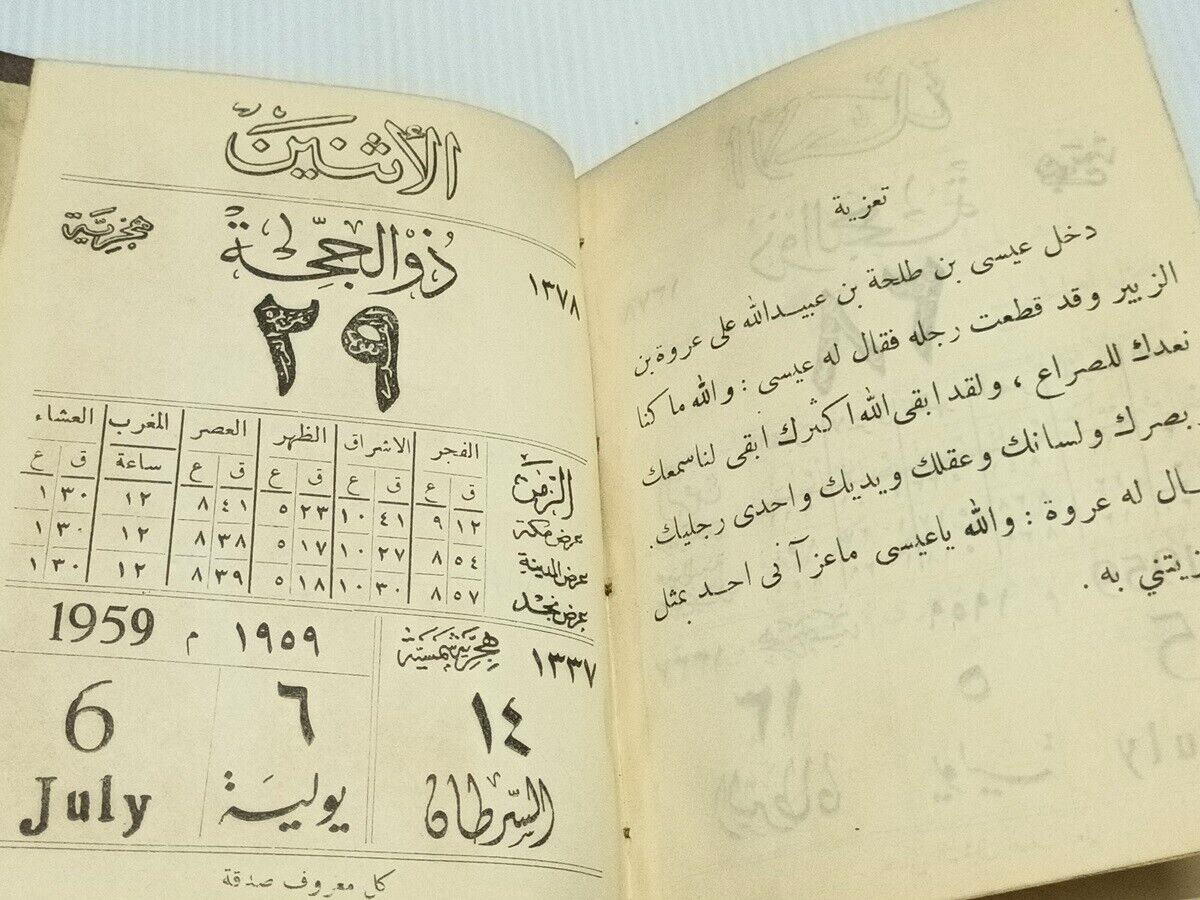 الأثنين
هجرية
ذو الحجة
١٣٧٨
٢٩
الفجر الاشراق الظهر العصر المغرب العشاء
الزمن ق ع ق ع ق ع ق ع ساعة ق ع
عرض مكة ١٢ ٩ ٤١ ١٠ ٢٣ ٥ ٤١ ٨ ١٢ ٣٠ ١
عرض المدينة ٥٤ ٨ ٢٧ ١٠ ١٧ ٥ ٣٨ ٨ ١٢ ٣٠ ١
عرض نجد ٥٧ ٨ ٣٠ ١٠ ١٨ ٥ ٣٩ ٨ ١٢ ٣٠ ١
١٣٣٧ هجرية شمسية
١٩٥٩ م 1959
١٤ ٦ 6
السرطان يولية July
كل معروف صدقة
تعزية
دخل عيسى بن طلحة بن عبيدالله على عروة بن
الزبير وقد قطعت رجله فقال له عيسى : والله ما كنا
نعدك للصراع ، ولقد ابقى الله اكثرك ابقى لنا سمعك
بصرك ولسانك وعقلك ويديك واحدى رجليك.
ـال له عروة : والله ياعيسى ماعزآنى احد بمثل
ـزيتني به .